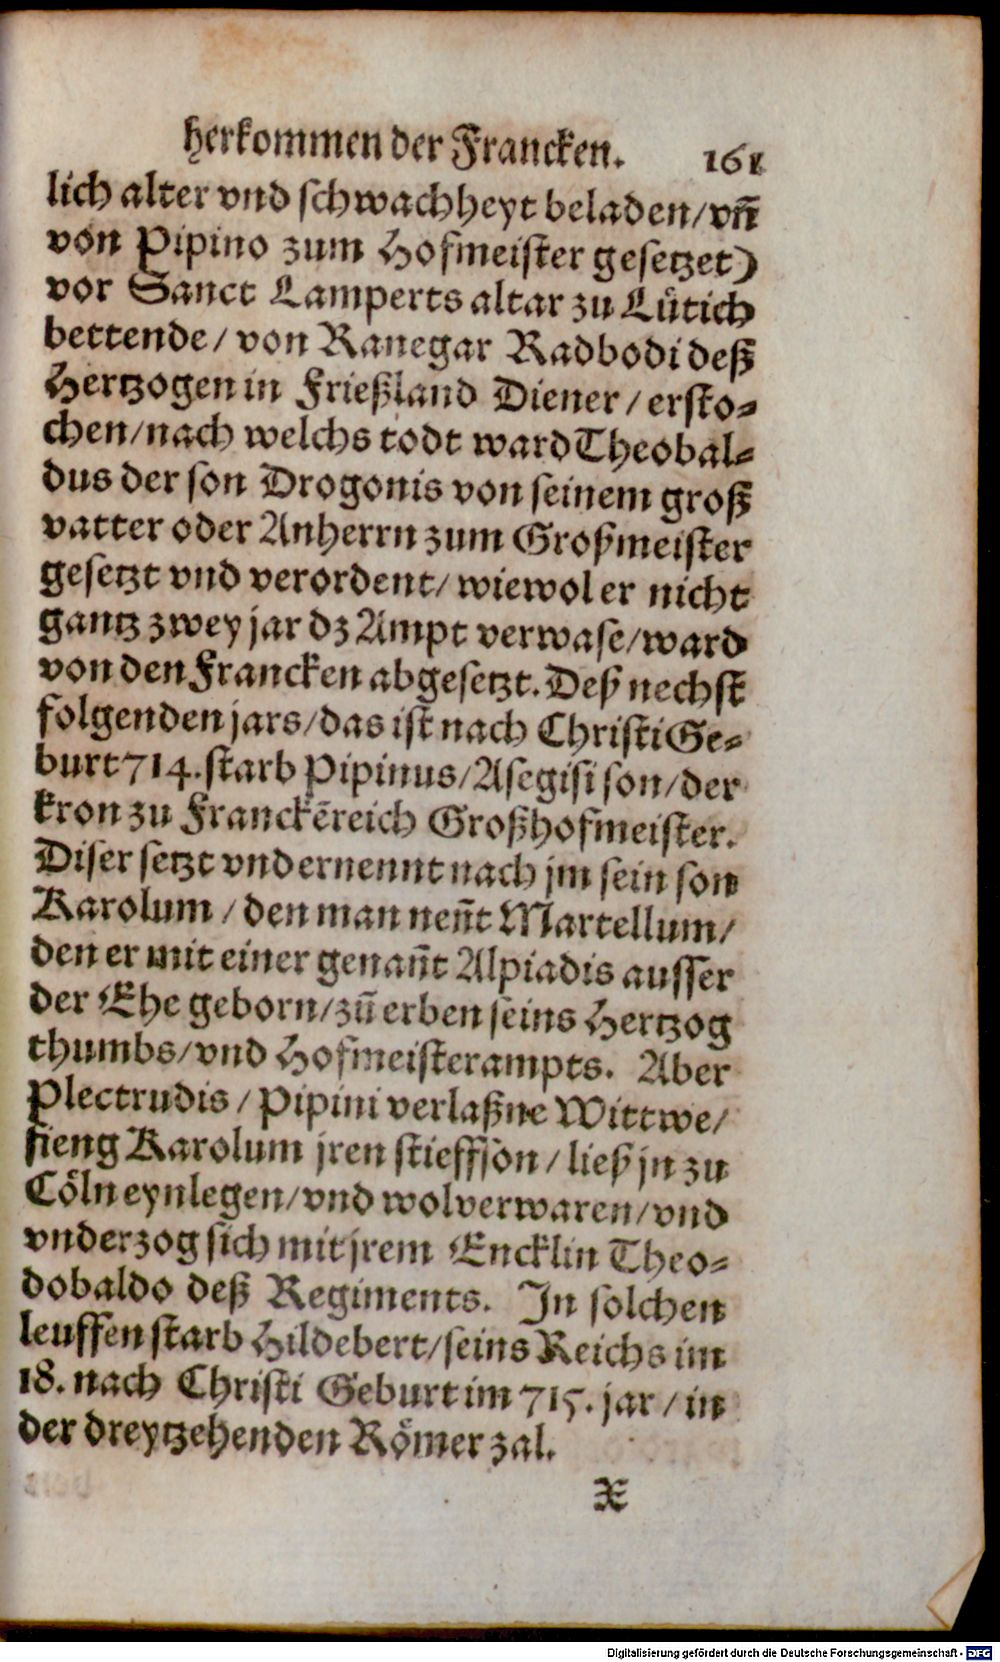 herkommen der Francken. 161
lich alter vnd schwachheyt beladen/vñ
von Pipino zum Hofmeister gesetzet)
vor Sanct Lamperts altar zu Lütich
bettende/ von Ranegar Radbodi deß
Hertzogen in Frießland Diener/ ersto⸗
chen/nach welchs todt ward Theobal⸗
dus der son Drogonis von seinem groß
vatter oder Anherrn zum Großmeister
gesetzt vnd verordent/ wiewol er nicht
gantz zwey jar dz Ampt verwase/ward
von den Francken abgesetzt. Deß nechst
folgenden jars/das ist nach Christi Ge⸗
burt 714. starb Pipinus/Asegisi son/der
kron zu Franckẽreich Großhofmeister.
Diser setzt vnd ernennt nach jm sein son
Karolum / den man neñt Martellum/
den er mit einer genañt Alpiadis ausser
der Ehe geborn/zũ erben seins Hertzog
thumbs/vnd Hofmeisterampts. Aber
Plectrudis / Pipini verlaßne Wittwe/
fieng Karolum jren stieffson/ ließ jn zu
Cöln eynlegen/vnd wol verwaren/vnd
vnderzog sich mit jrem Encklin Theo⸗
dobaldo deß Regiments. In solchen
leuffen starb Hildebert/seins Reichs im
18. nach Christi Geburt im 715. jar / in
der dreytzehenden Römer zal.
X
Digitalisierung gefördert durch die Deutsche Forschungsgemeinschaft - DFG